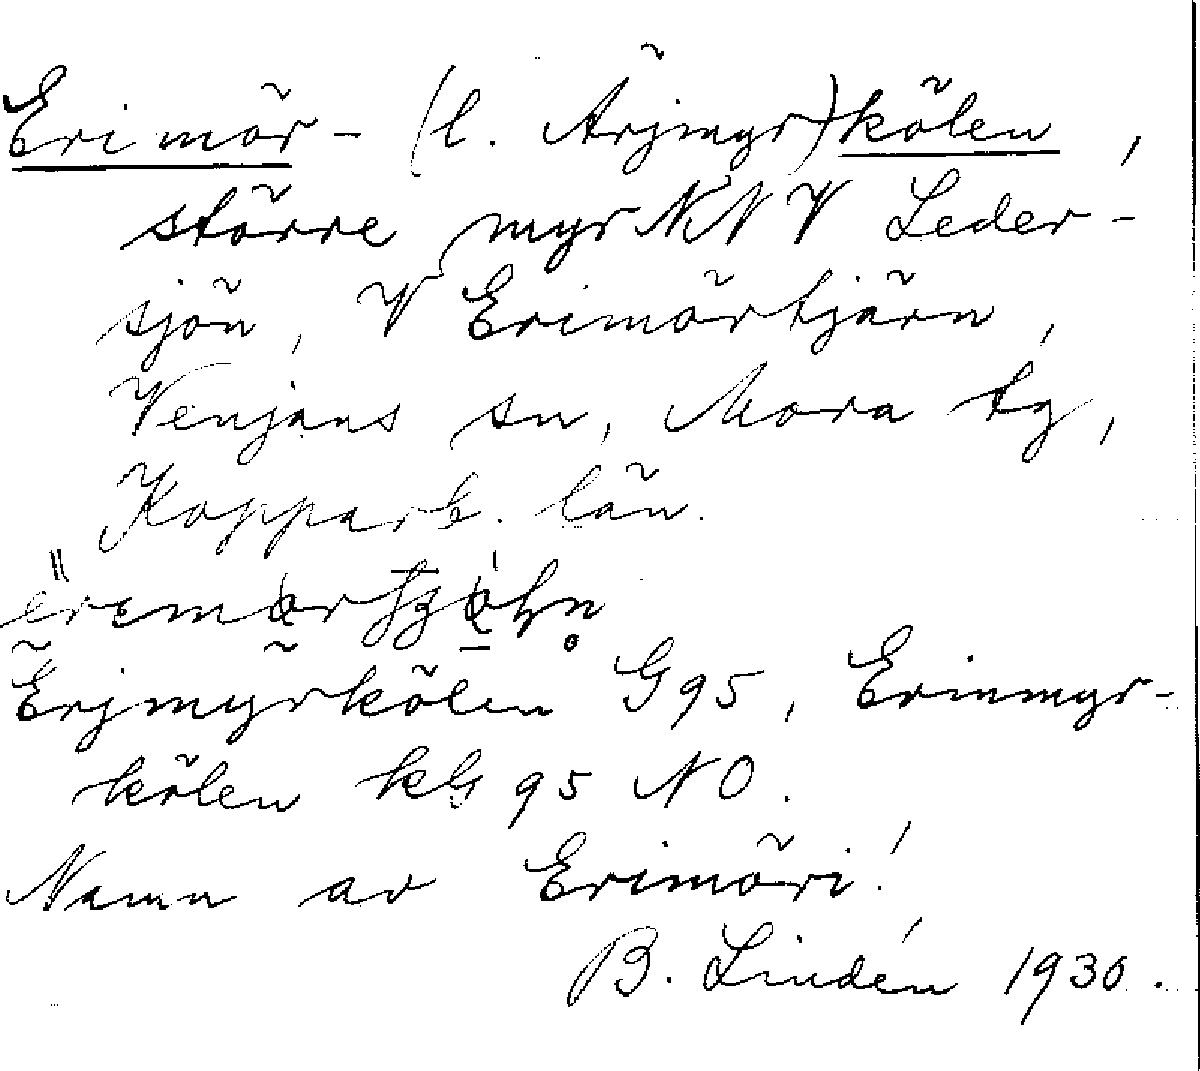 Erimör- (l. Ärjmyr)kölen,
större myr NNV Leder-
sjön, V Erimörtjärn,
Venjans sn, Mora tg,
Kopparb. län.
Erjmyrkölen G95, Erinmyr-
kölen kG 95 NO.
Namn av Erimöri!
B. Lindén 1930.